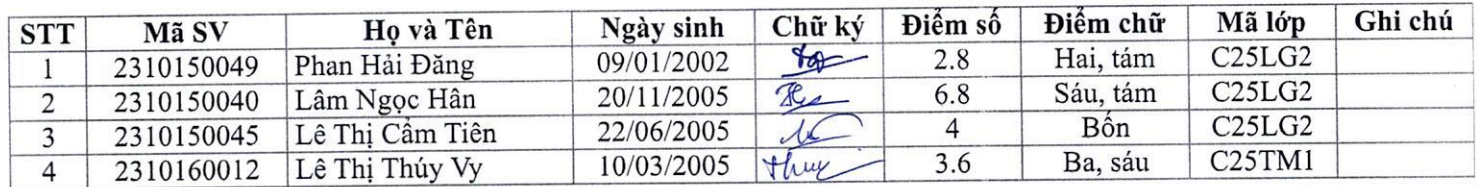 STT Mã SV Họ và Tên Ngày sinh Chữ ký Điểm số Điểm chữ Mã lớp Ghi chú
1 2310150049 Phan Hải Đăng 09/01/2002 2.8 Hai, tám C25LG2
2 2310150040 Lâm Ngọc Hân 20/11/2005 6.8 Sáu, tám C25LG2
3 2310150045 Lê Thị Cẩm Tiên 22/06/2005 4 Bốn C25LG2
4 2310160012 Lê Thị Thúy Vy 10/03/2005 Thuy 3.6 Ba, sáu C25TM1